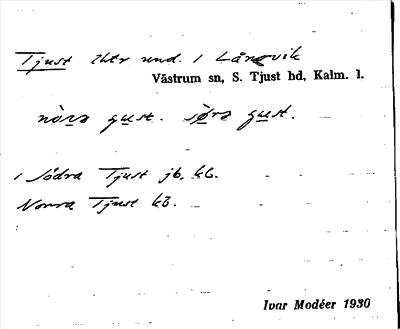 Tjust unð. i Långvik
Västrum sn, S. Tjust hd, Kalm. l.
gust. gust.
i Södra Tjust jb, kb.
Norra Tjust kb.
Ivar Modéer 1930